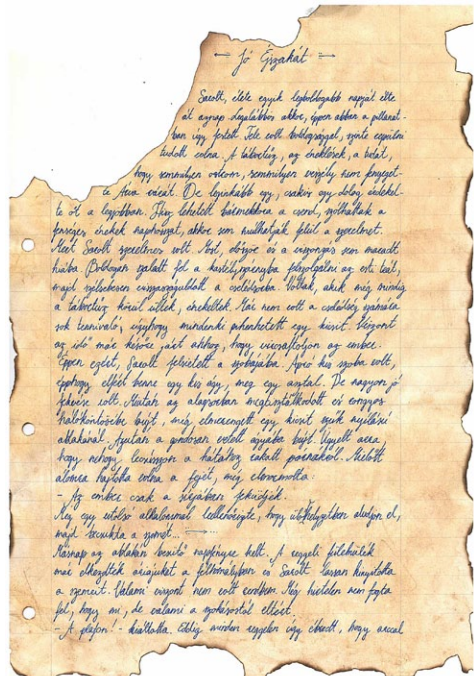 Jó Éjszakát
Sacott, élete egyik legboldogabb napját élte
át aznap. Legalábbis akkor, éppen abban a pillanat-
ban úgy érződött. Tele volt boldogsággal, szinte
tudott volna. A tábortűz, az éneklések, a tudat,
hogy semmilyen ostrom, semmilyen veszély nem fenyeget-
te várát. De leginkább egy, csakis egy dolog érdekel-
te őt a legjobban. Hisz lehetett bármekkora a csend, szólhattak a
fenséges énekek napokszat, akkor sem múlhatják felül a szerelmet.
Mert Sacott szerelmes volt. Most, először és a viszonzás sem maradt
hiába. Boldogan szaladt fel a felszolgálni az esti teát,
majd sebesen a cselédsorba. Voltak, akik még mindig
a tábortűz körül ültek, énekeltek. Már nem volt a cselédség számára
sok tennivaló, úgyhogy mindenki pihenhetett egy kicsit. Viszont
az idő már későre járt ahhoz, hogy az ember.
Éppen ezért, Sacott felsietett a szobájába. Apró kis szoba volt,
épphogy elfért benne egy kis ágy, meg egy asztal. De nagyon jó
fekvése volt. Miután az alagsorban megtisztálkodott és rongyos
hálóköntösébe bújt, még elmerengett egy kicsit szűk nyílású
ablakánál. Azután a gondosan vetett ágyába bújt. Ügyelt arra,
hogy nehogy a hátához rakott párnákról. Mielőtt
álomra hajtotta volna a fejét, még elmormolta:
- Az ember csak a sírjában feküdjék.
Még egy utolsó alkalommal leellenőrizte, hogy ülőhelyzetben aludjon el,
majd lecsukta a szemét...
Másnap az ablakán beinstó napfényre kelt. A reggeli fülekiék
már elkezdték áriájukat a félhomályban és Sacott lassan kinyitotta
a szemeit. Valami viszont nem volt rendben. Még hirtelen nem fogta
fel, hogy mi, de valami a szokásostól eltért.
- A plafon! - kiáltotta. Eddig minden reggelen úgy ébredt, hogy arccal